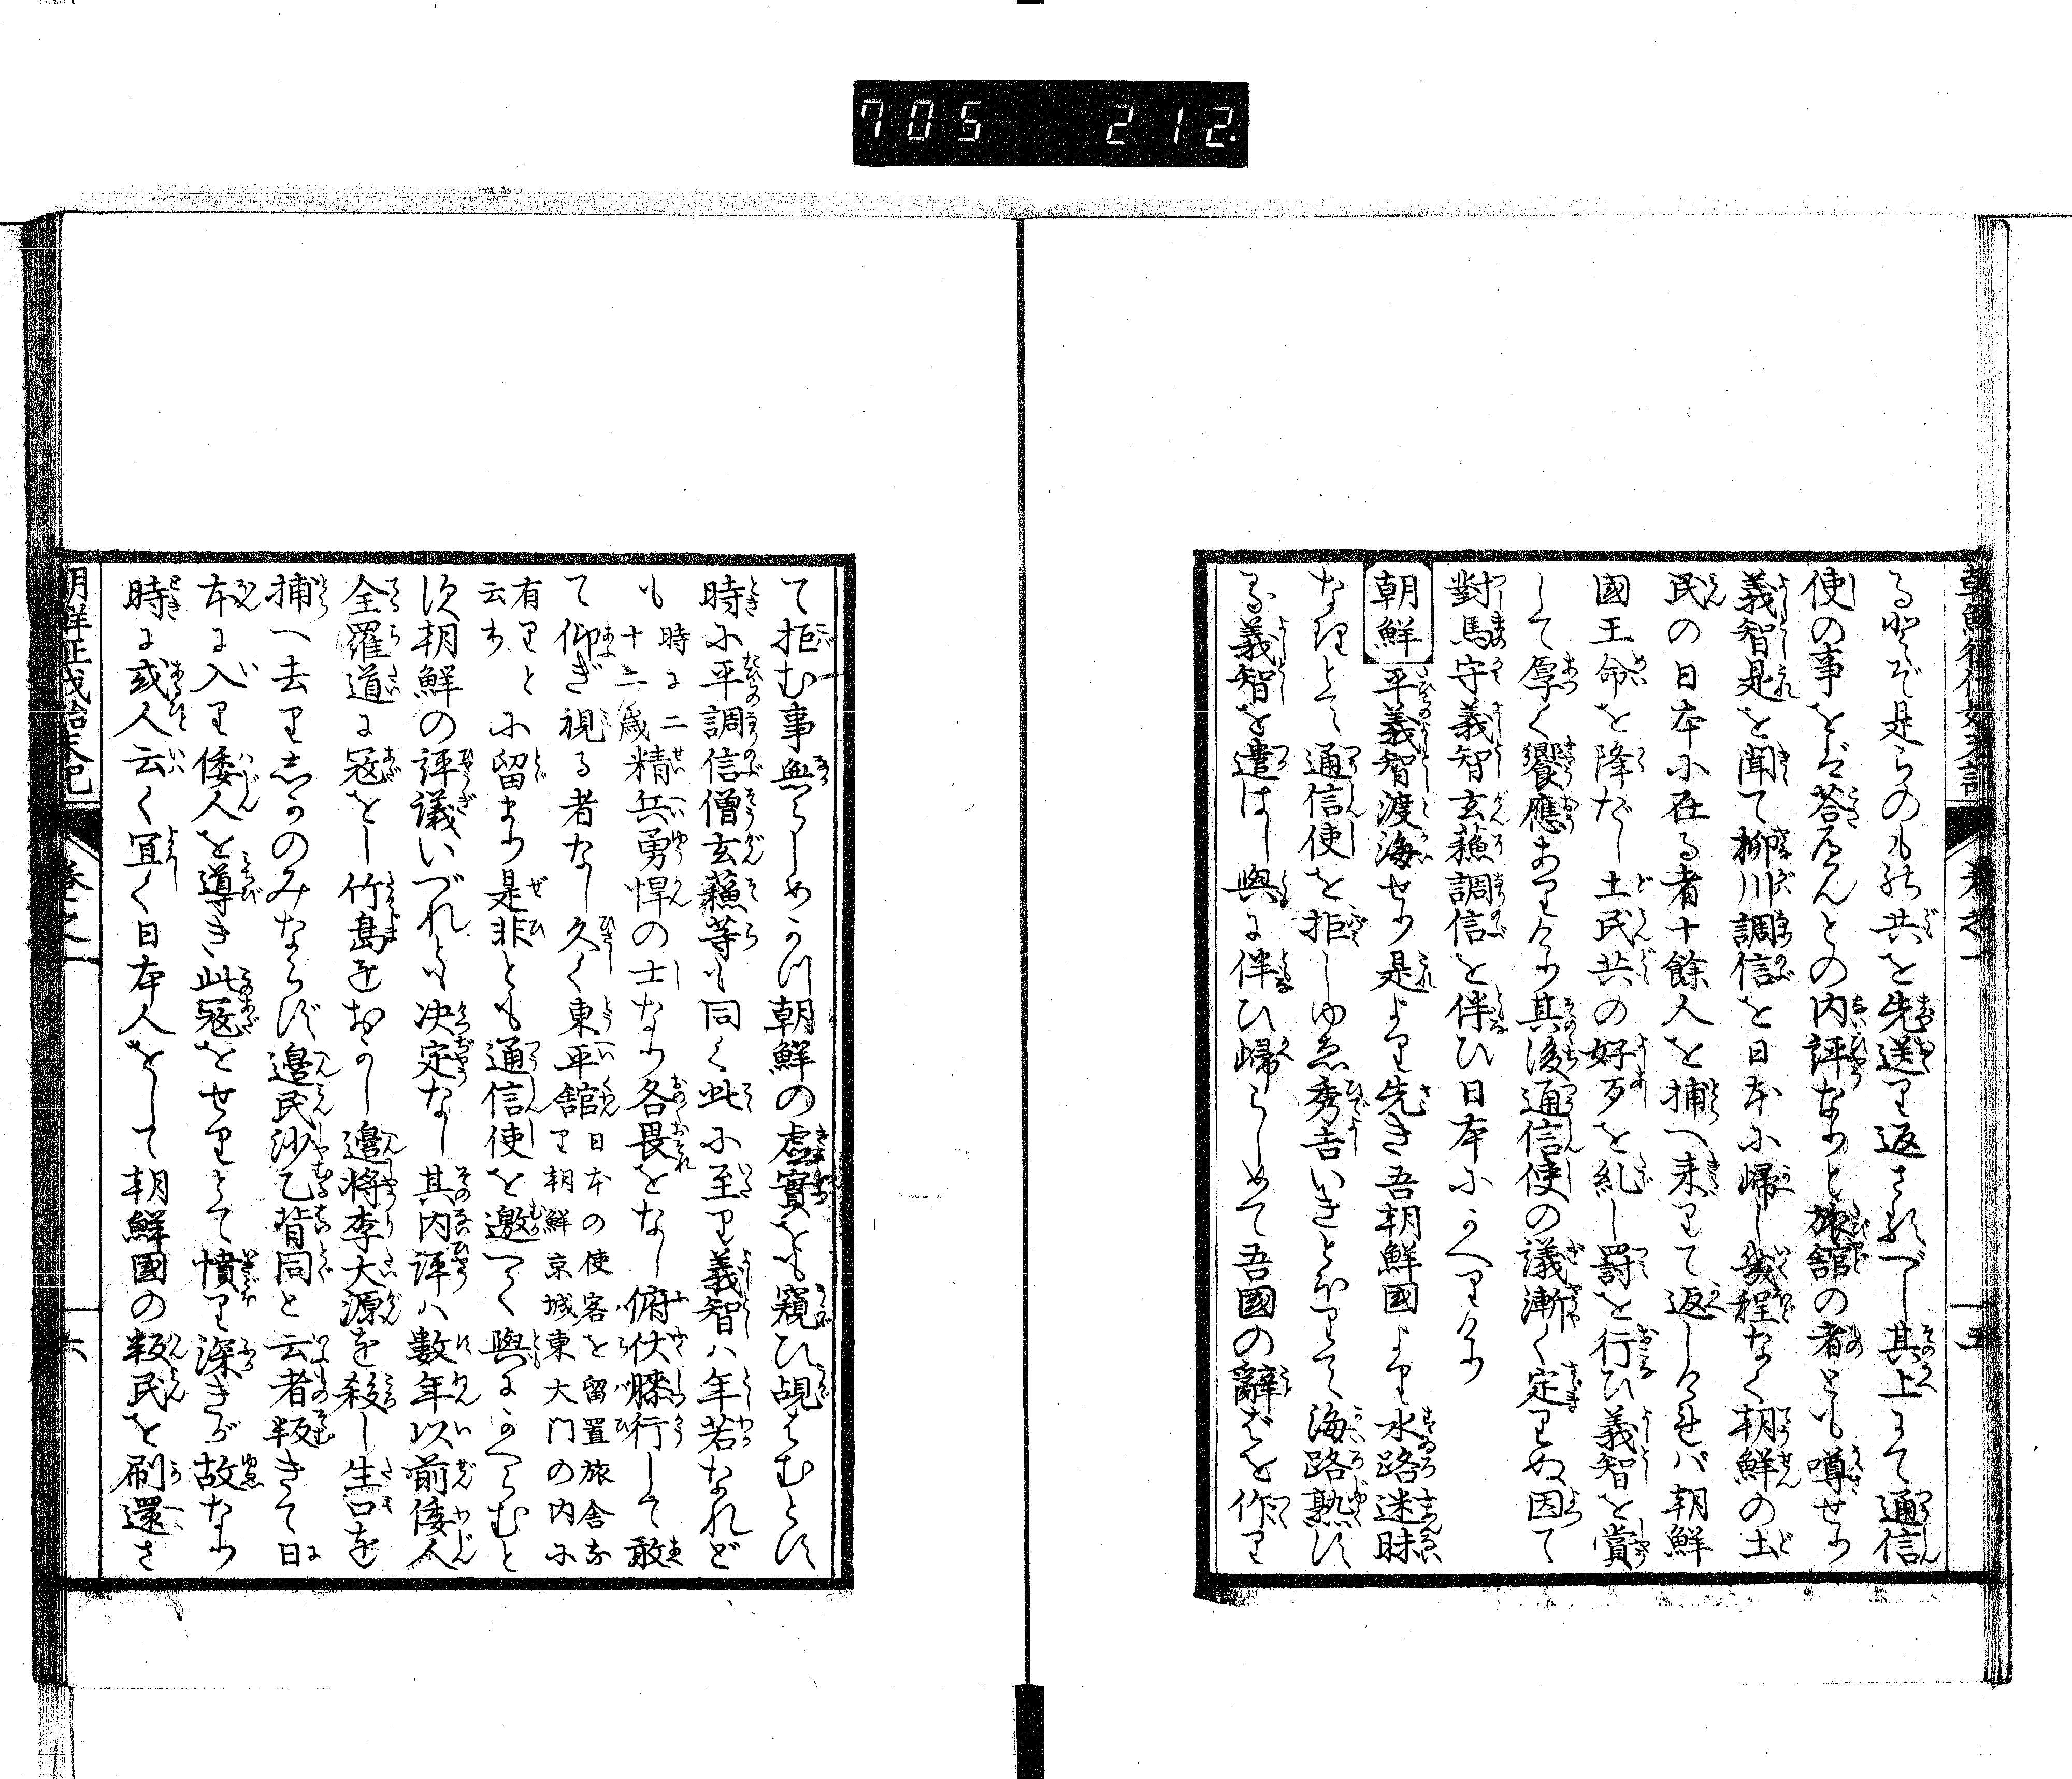 705 212.
朝鮮征伐始末記
巻之一
五
る程ぞ是らのもの共を先送り返さるべし其上にて通信
使の事をば荅ふんとの内評なりと旅舘の者とも噂せり
義智是を聞て柳川調信を日本に帰し幾程なく朝鮮の土
民の日本に在る者十餘人を捕へ来りて返しけれバ朝鮮
國王命を降だし土民共の好歹を糺し罸を行ひ義智を賞
して厚く饗應ありけり其後通信使の議漸く定りぬ因て
對馬守義智玄蘓調信を伴ひ日本にかへりけり
朝鮮 平義智渡海せり是より先き吾朝鮮國より水路迷昧
なりとて通信使を拒しゆゑ秀吉いきとほりて海路熟す
る義智を遣はし與に伴ひ帰らしめて吾國の辭ばを作り
て拒む事無らしめかつ朝鮮の虚實をも窺ひ覘はむとす
時に平調信僧玄蘓等も同く此に至り義智ハ年若なれど
も 時に二十二歳 精兵勇悍の士なり各畏をなし俯伏膝行して敢
て仰ぎ視る者なし久く東平舘 日本の使客を留置旅舎なり朝鮮京城東大門の内に
有りと云り に留まり是非とも通信使を邀へく與にかへらむと
次朝鮮の評議いづれとも决定なし其内評ハ數年以前倭人
全羅道に冦をし竹島をおかし邉将李大源を殺し生口を
捕へ去りしかのみならず邉民沙乙背同と云者叛きて日
本に入り倭人を導き此冦をせりとて憤り深きが故なり
時に或人云く宜く日本人をして朝鮮國の叛民を刷還さ
朝鮮征伐始末記
巻之一
六